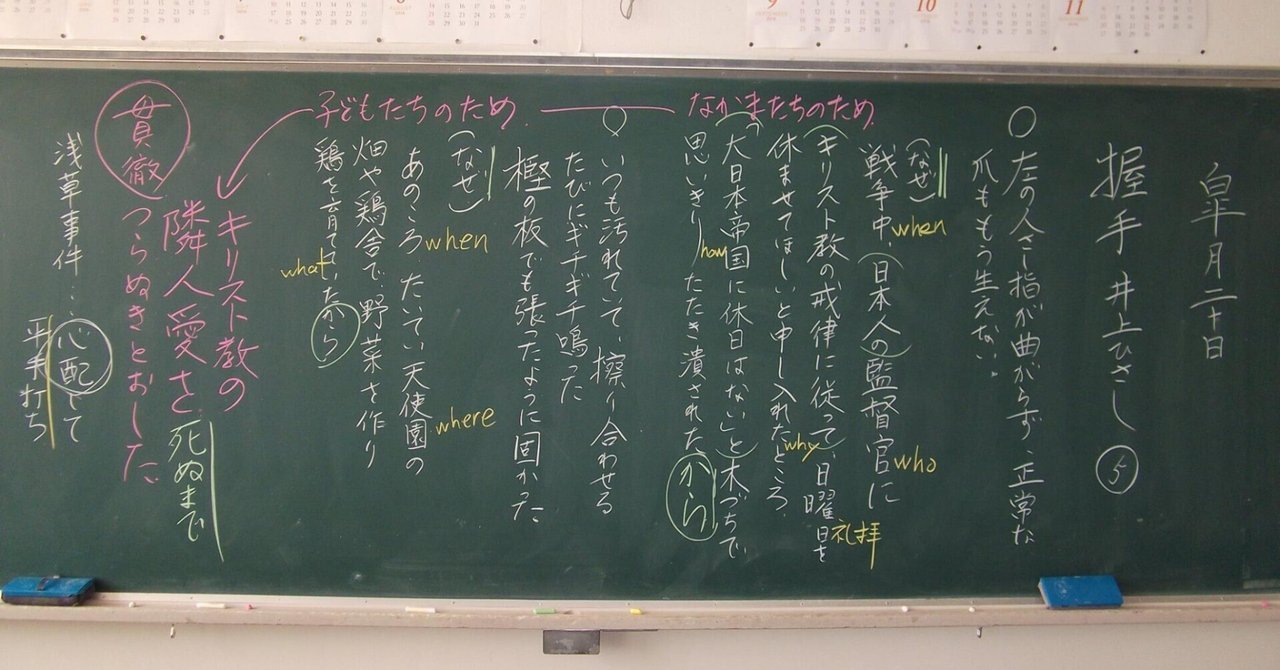 皐月二十日
握手 井上ひさし ⑤
○左の人さし指が曲がらず、正常な
爪ももう生えない。
(なぜ)
when
戦争中、(日本人の)監督官に
who
(キリスト教の戒律に従って)、日曜日を
礼拝
why
休ませてほしいと申し入れたところ
(「大日本帝国に休日はない」と)木づちで、
how
思いきりたたき潰されたから。
なかまたちのため
○いつも汚れていて、擦り合わせる
たびにギチギチ鳴った
樫の板でも張ったように固かった
(なぜ)
when
あのころ たいてい天使園の
where
畑や鶏舎で、野菜を作り
鶏を育てていたから
what
子どもたちのため
キリスト教の
隣人愛を、死ぬまで
貫徹 つらぬきとおした。
浅草事件‥心配して
平手打ち